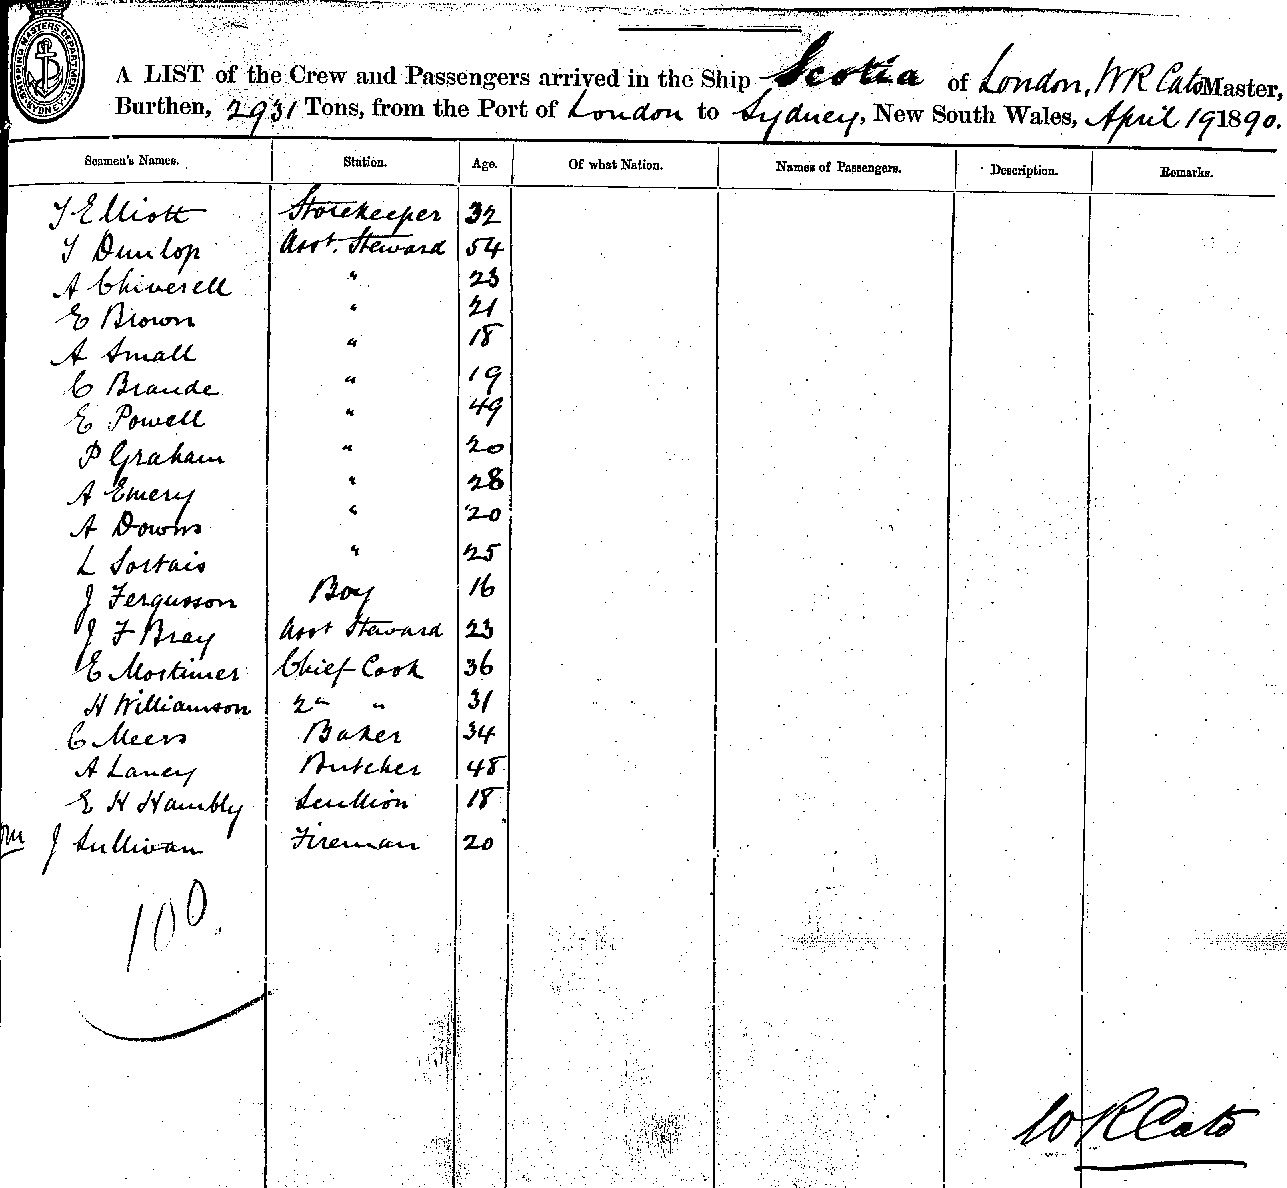 SHIPPING MASTERS DEPARTMENT SYDNEY
A LIST of the Crew and Passengers arrived in the Ship Scotia of London, WR Cato Master,
Burthen, 2931 Tons, from the Port of London to Sydney, New South Wales, April 19 1890.
Seamen's Names. Station. Age. Of what Nation. Names of Passengers. Description. Remarks.
T Elliott Storekeeper 32
T Dunlop Asst. Steward 54
A Chiverell " 23
E Brown " 21
A Small " 18
C Braude " 19
E Powell " 49
P Graham " 20
A Emery " 28
A Downs " 20
L Sortais " 25
J Fergusson Boy 16
J F Bray Asst Steward 23
E Mortimer Chief Cook 36
H Williamson 2n " 31
C Meers Baker 34
A Laney Butcher 48
E H Hambly Scullion 18
J Sullivan Fireman 20
100
W R Cato